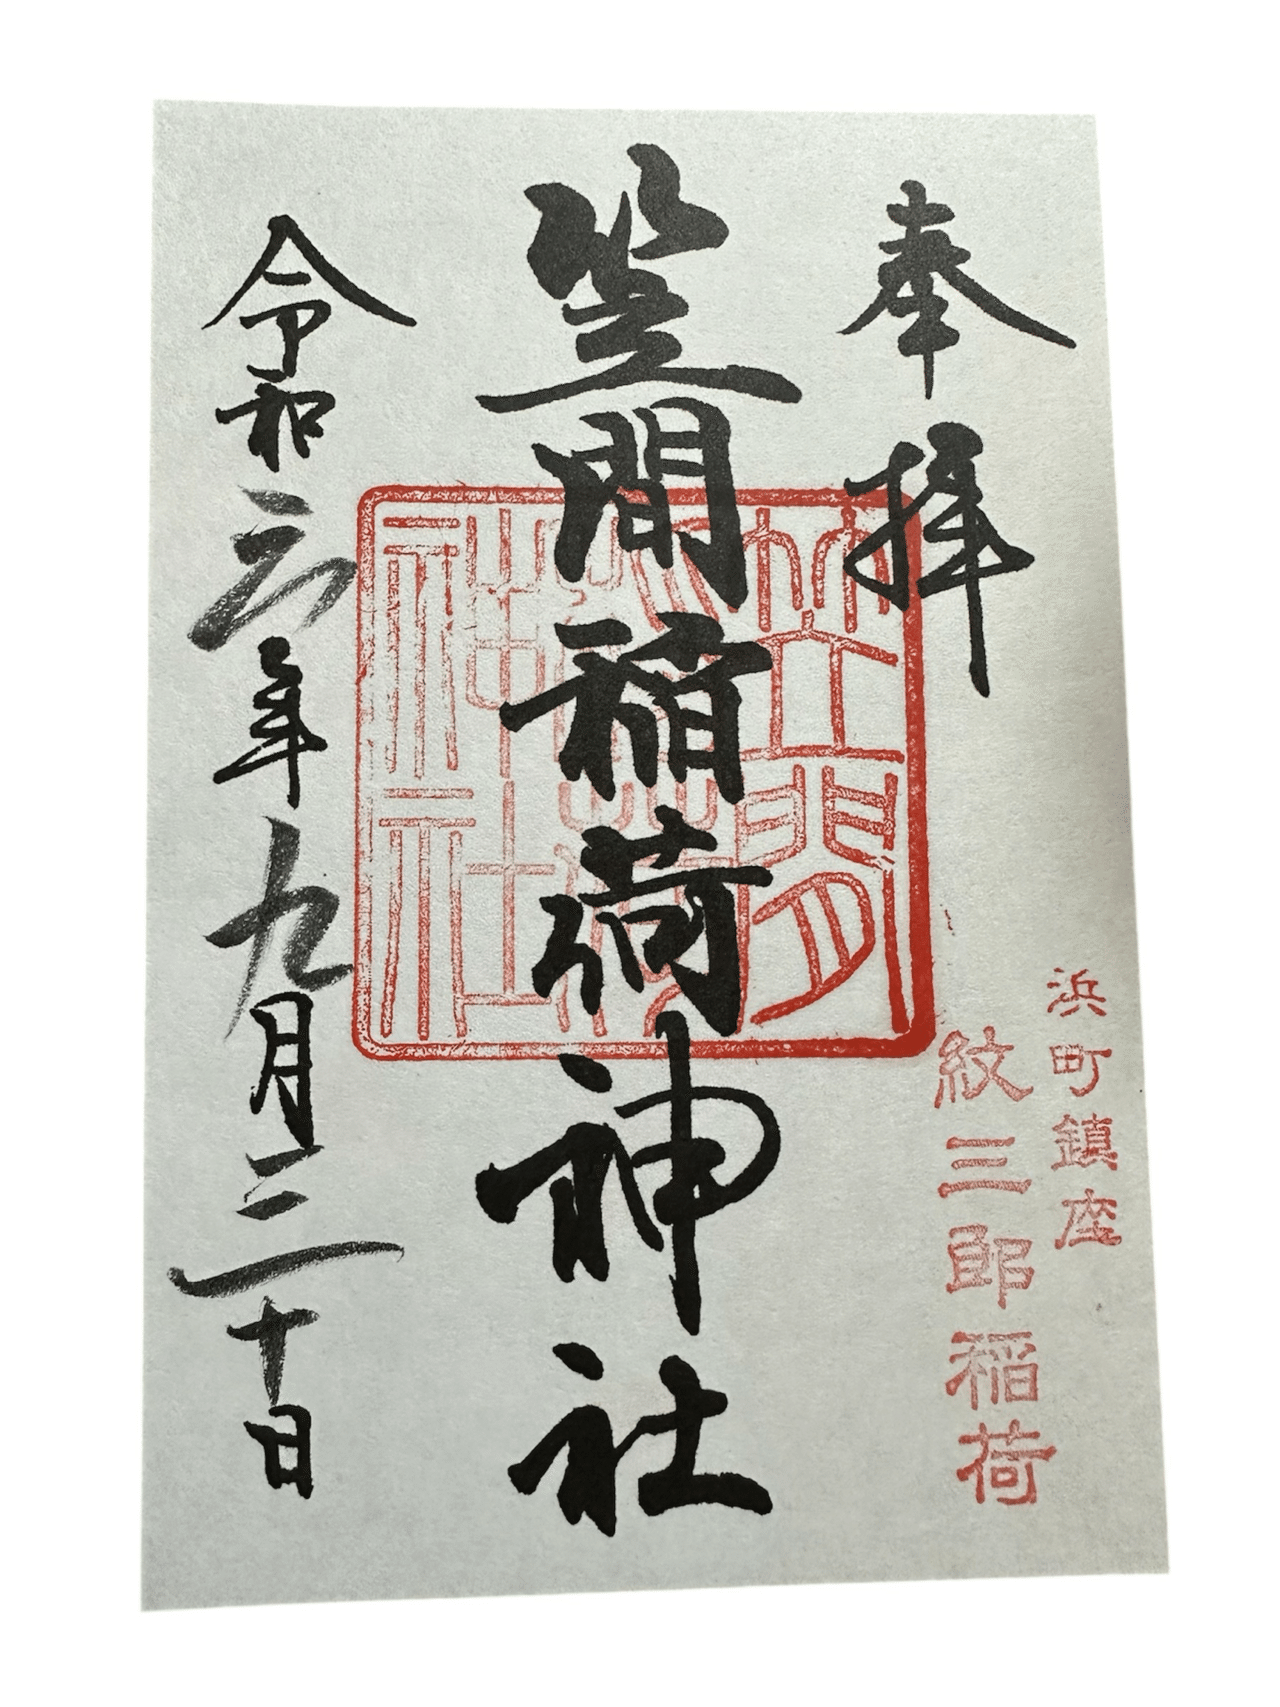 奉拝
浜町鎮座
紋三郎稲荷
笠間稲荷神社
笠間稲荷神社
令和六年九月三十日